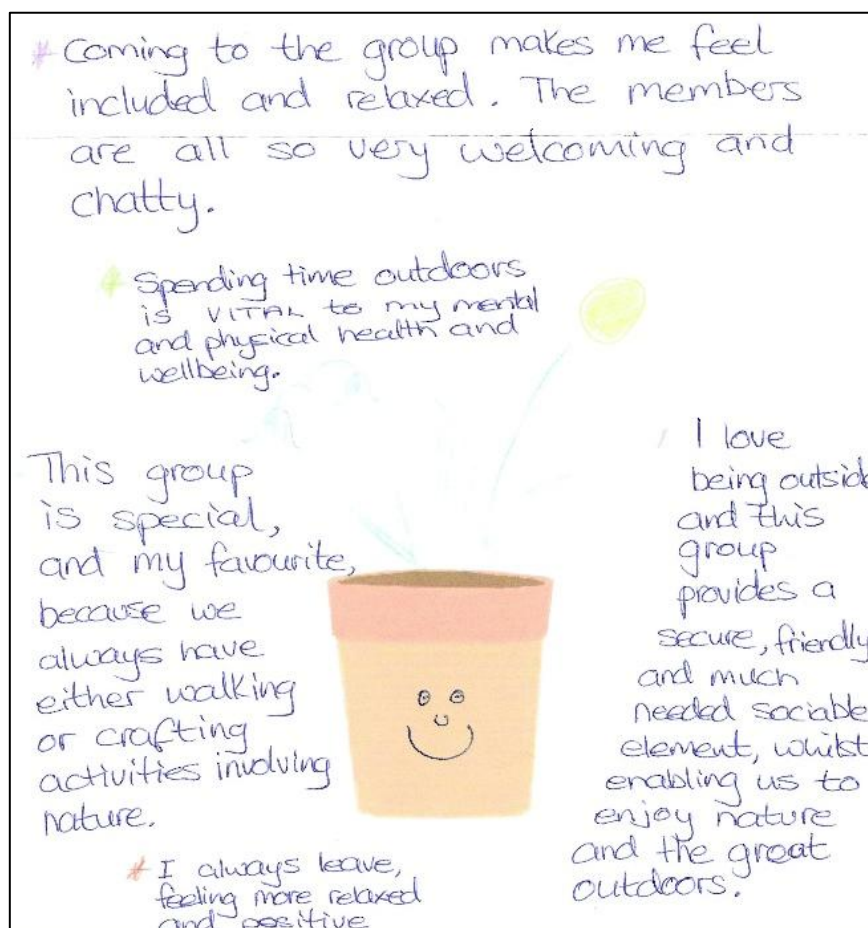 * Coming to the group makes me feel
included and relaxed. The members
are all so very welcoming and
chatty.
* Spending time outdoors
is VITAL to my mental
and physical health and
wellbeing.
This group
is special,
and my favourite,
because we
always have
either walking
or crafting
activities involving
nature.
I love
being outside
and this
group
provides a
secure, friendly
and much
needed sociable
element, whilst
enabling us to
enjoy nature
and the great
outdoors.
* I always leave,
feeling more relaxed
and positive